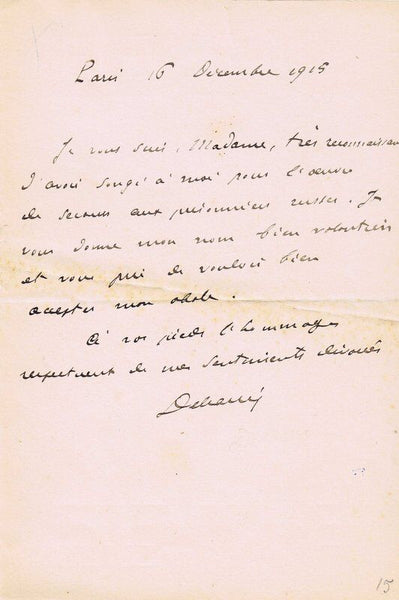 Paris 16 Décembre 1915
Je vous suis, Madame, très reconnaissant
d'avoir songé à moi pour l'œuvre
de secours aux prisonniers russes. Je
vous donne mon nom bien volontiers
et vous prie de vouloir bien
accepter mon obole.
à vos pieds l'hommage
respectueux de mes sentiments dévoués
15